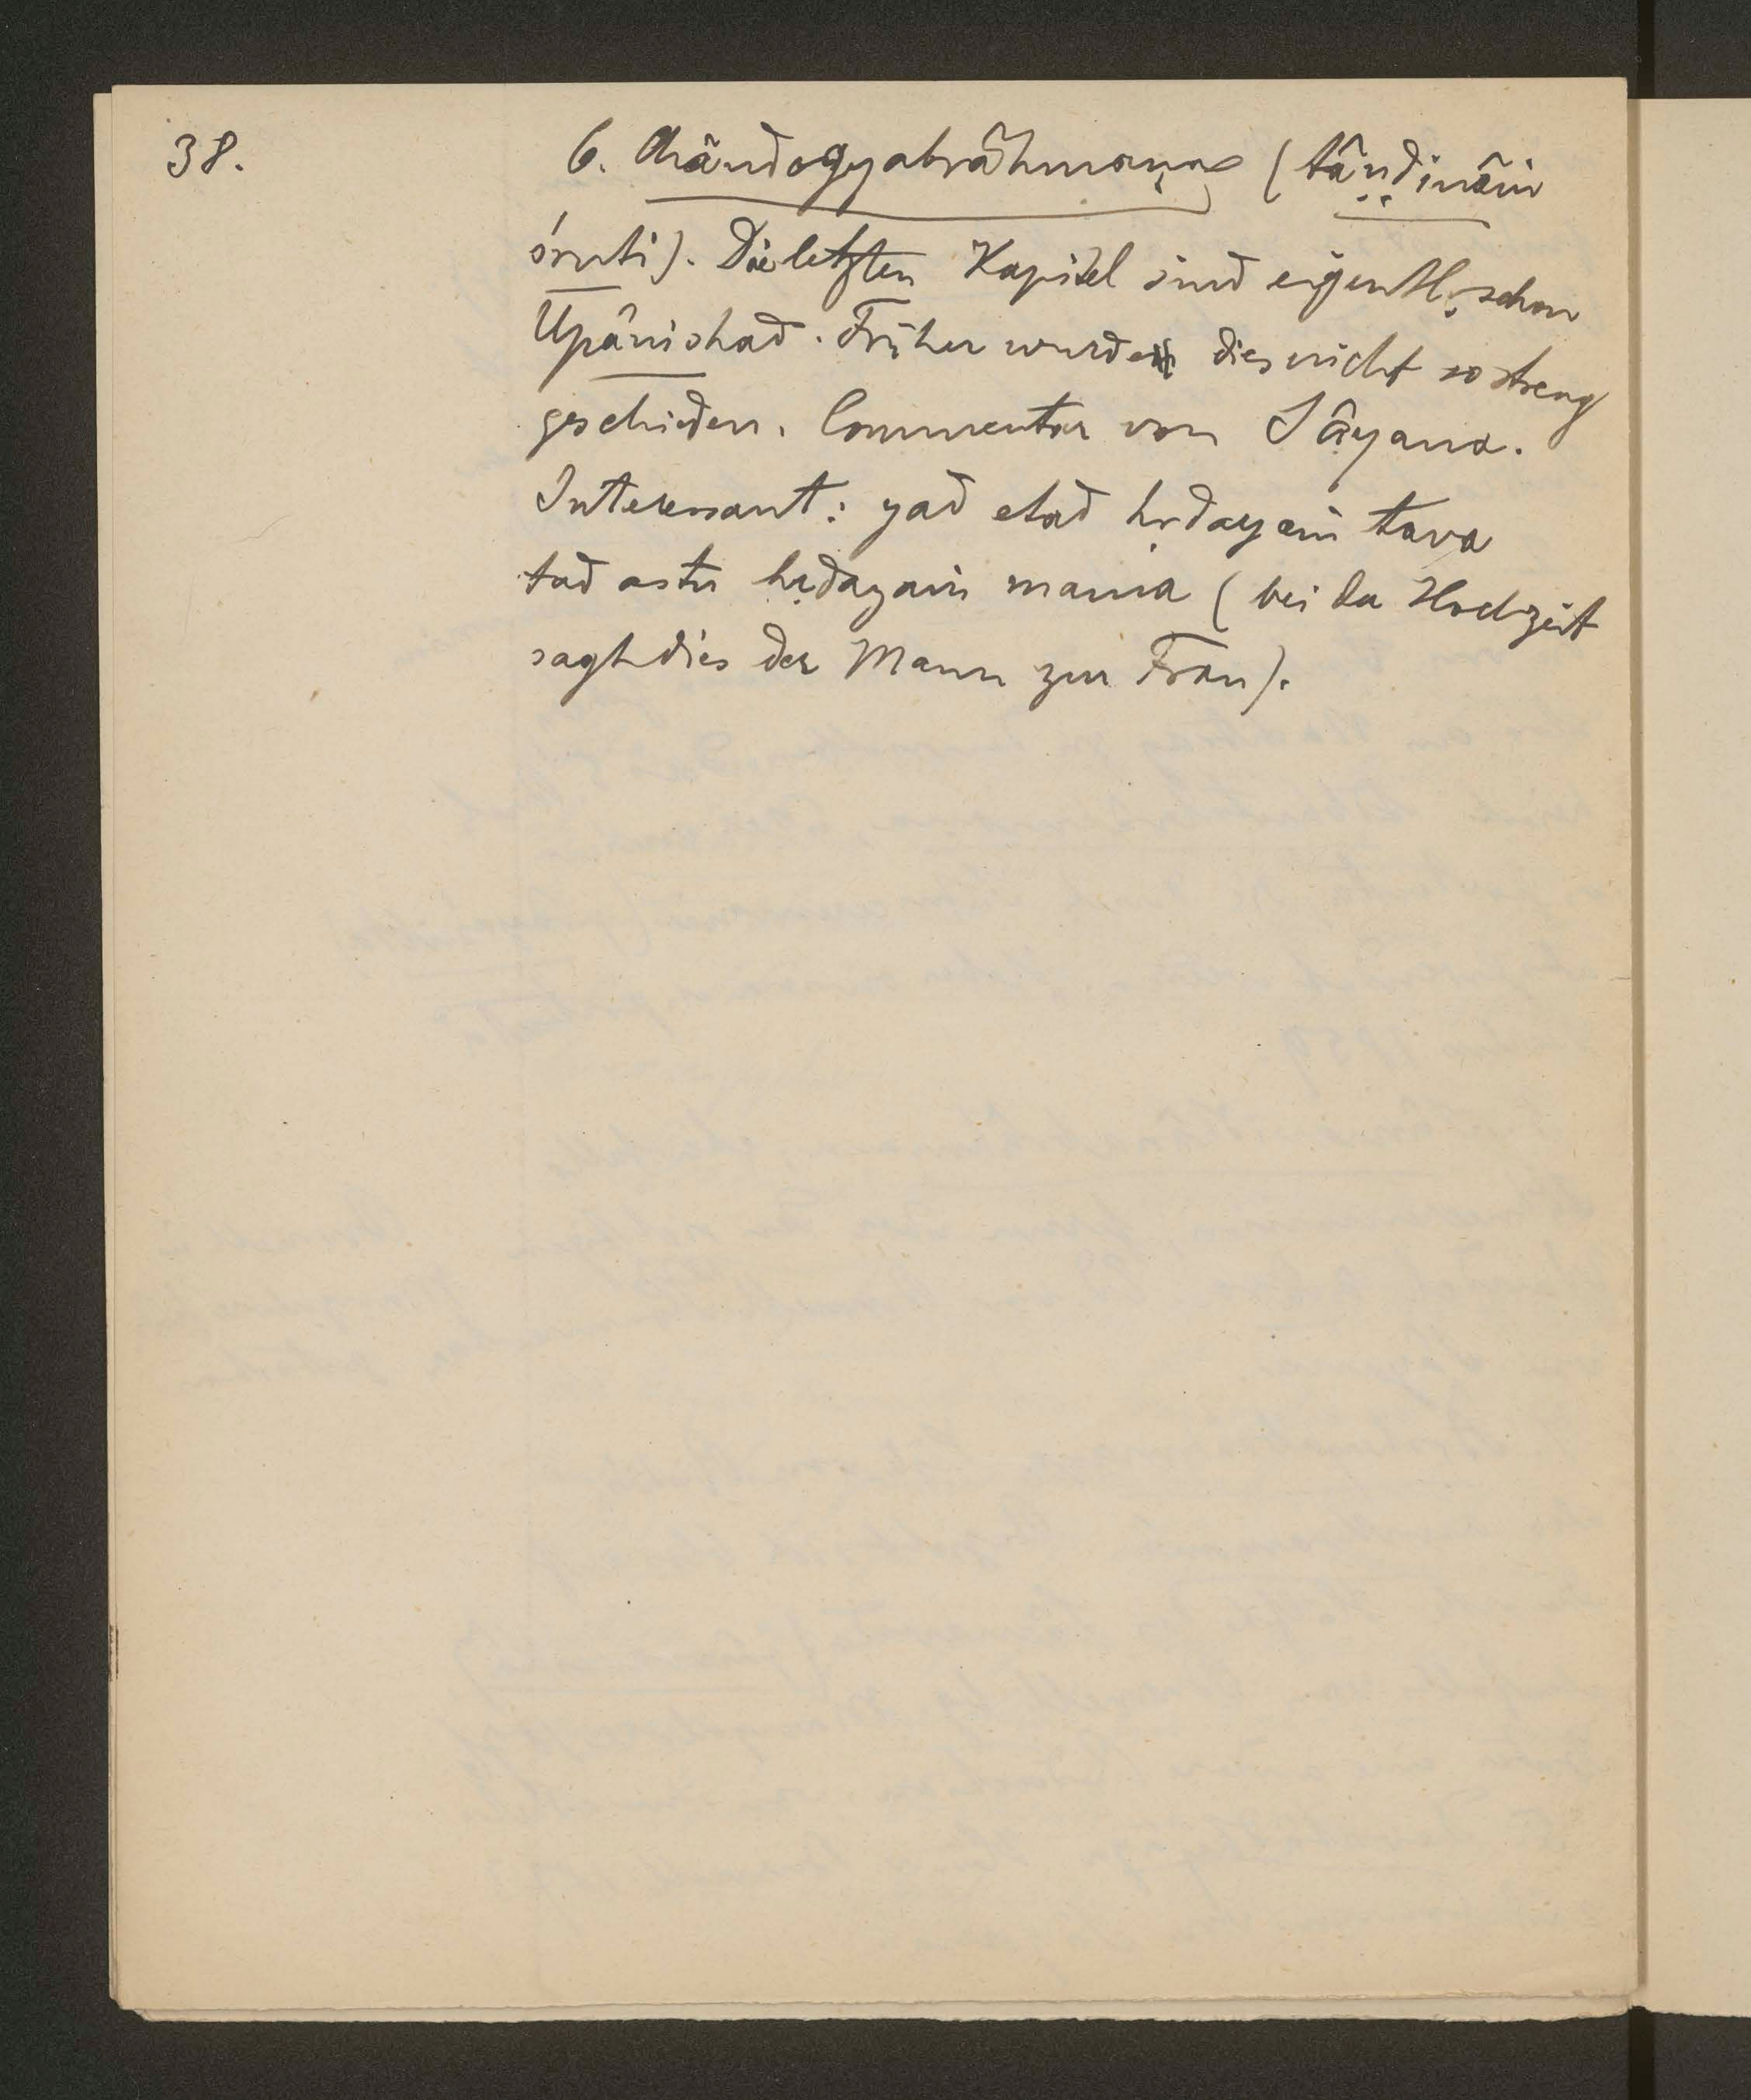 38.
6. Chândogyabrâhmaṇa (tâṇḍinâṁ
śruti). Die letzten Kapitel sind eigentl. schon
Upânishad. Früher wurde dies nicht so streng
geschieden. Commentar von Sâyana.
Interessant: yad etad hṛdayaṁ tava
tad astu hṛdayaṁ mama (bei der Hochzeit
sagt dies der Mann zur Frau).